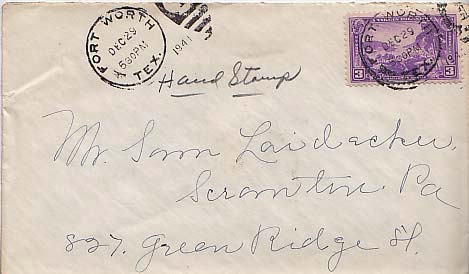 FORT WORTH
DEC 29
530PM
TEX.
1941
FORT WORTH
DEC 29
530PM
TEX.
3
3
Hand Stamp
Mr. Sam Laidacker
Scranton. Pa
827. Green Ridge St.